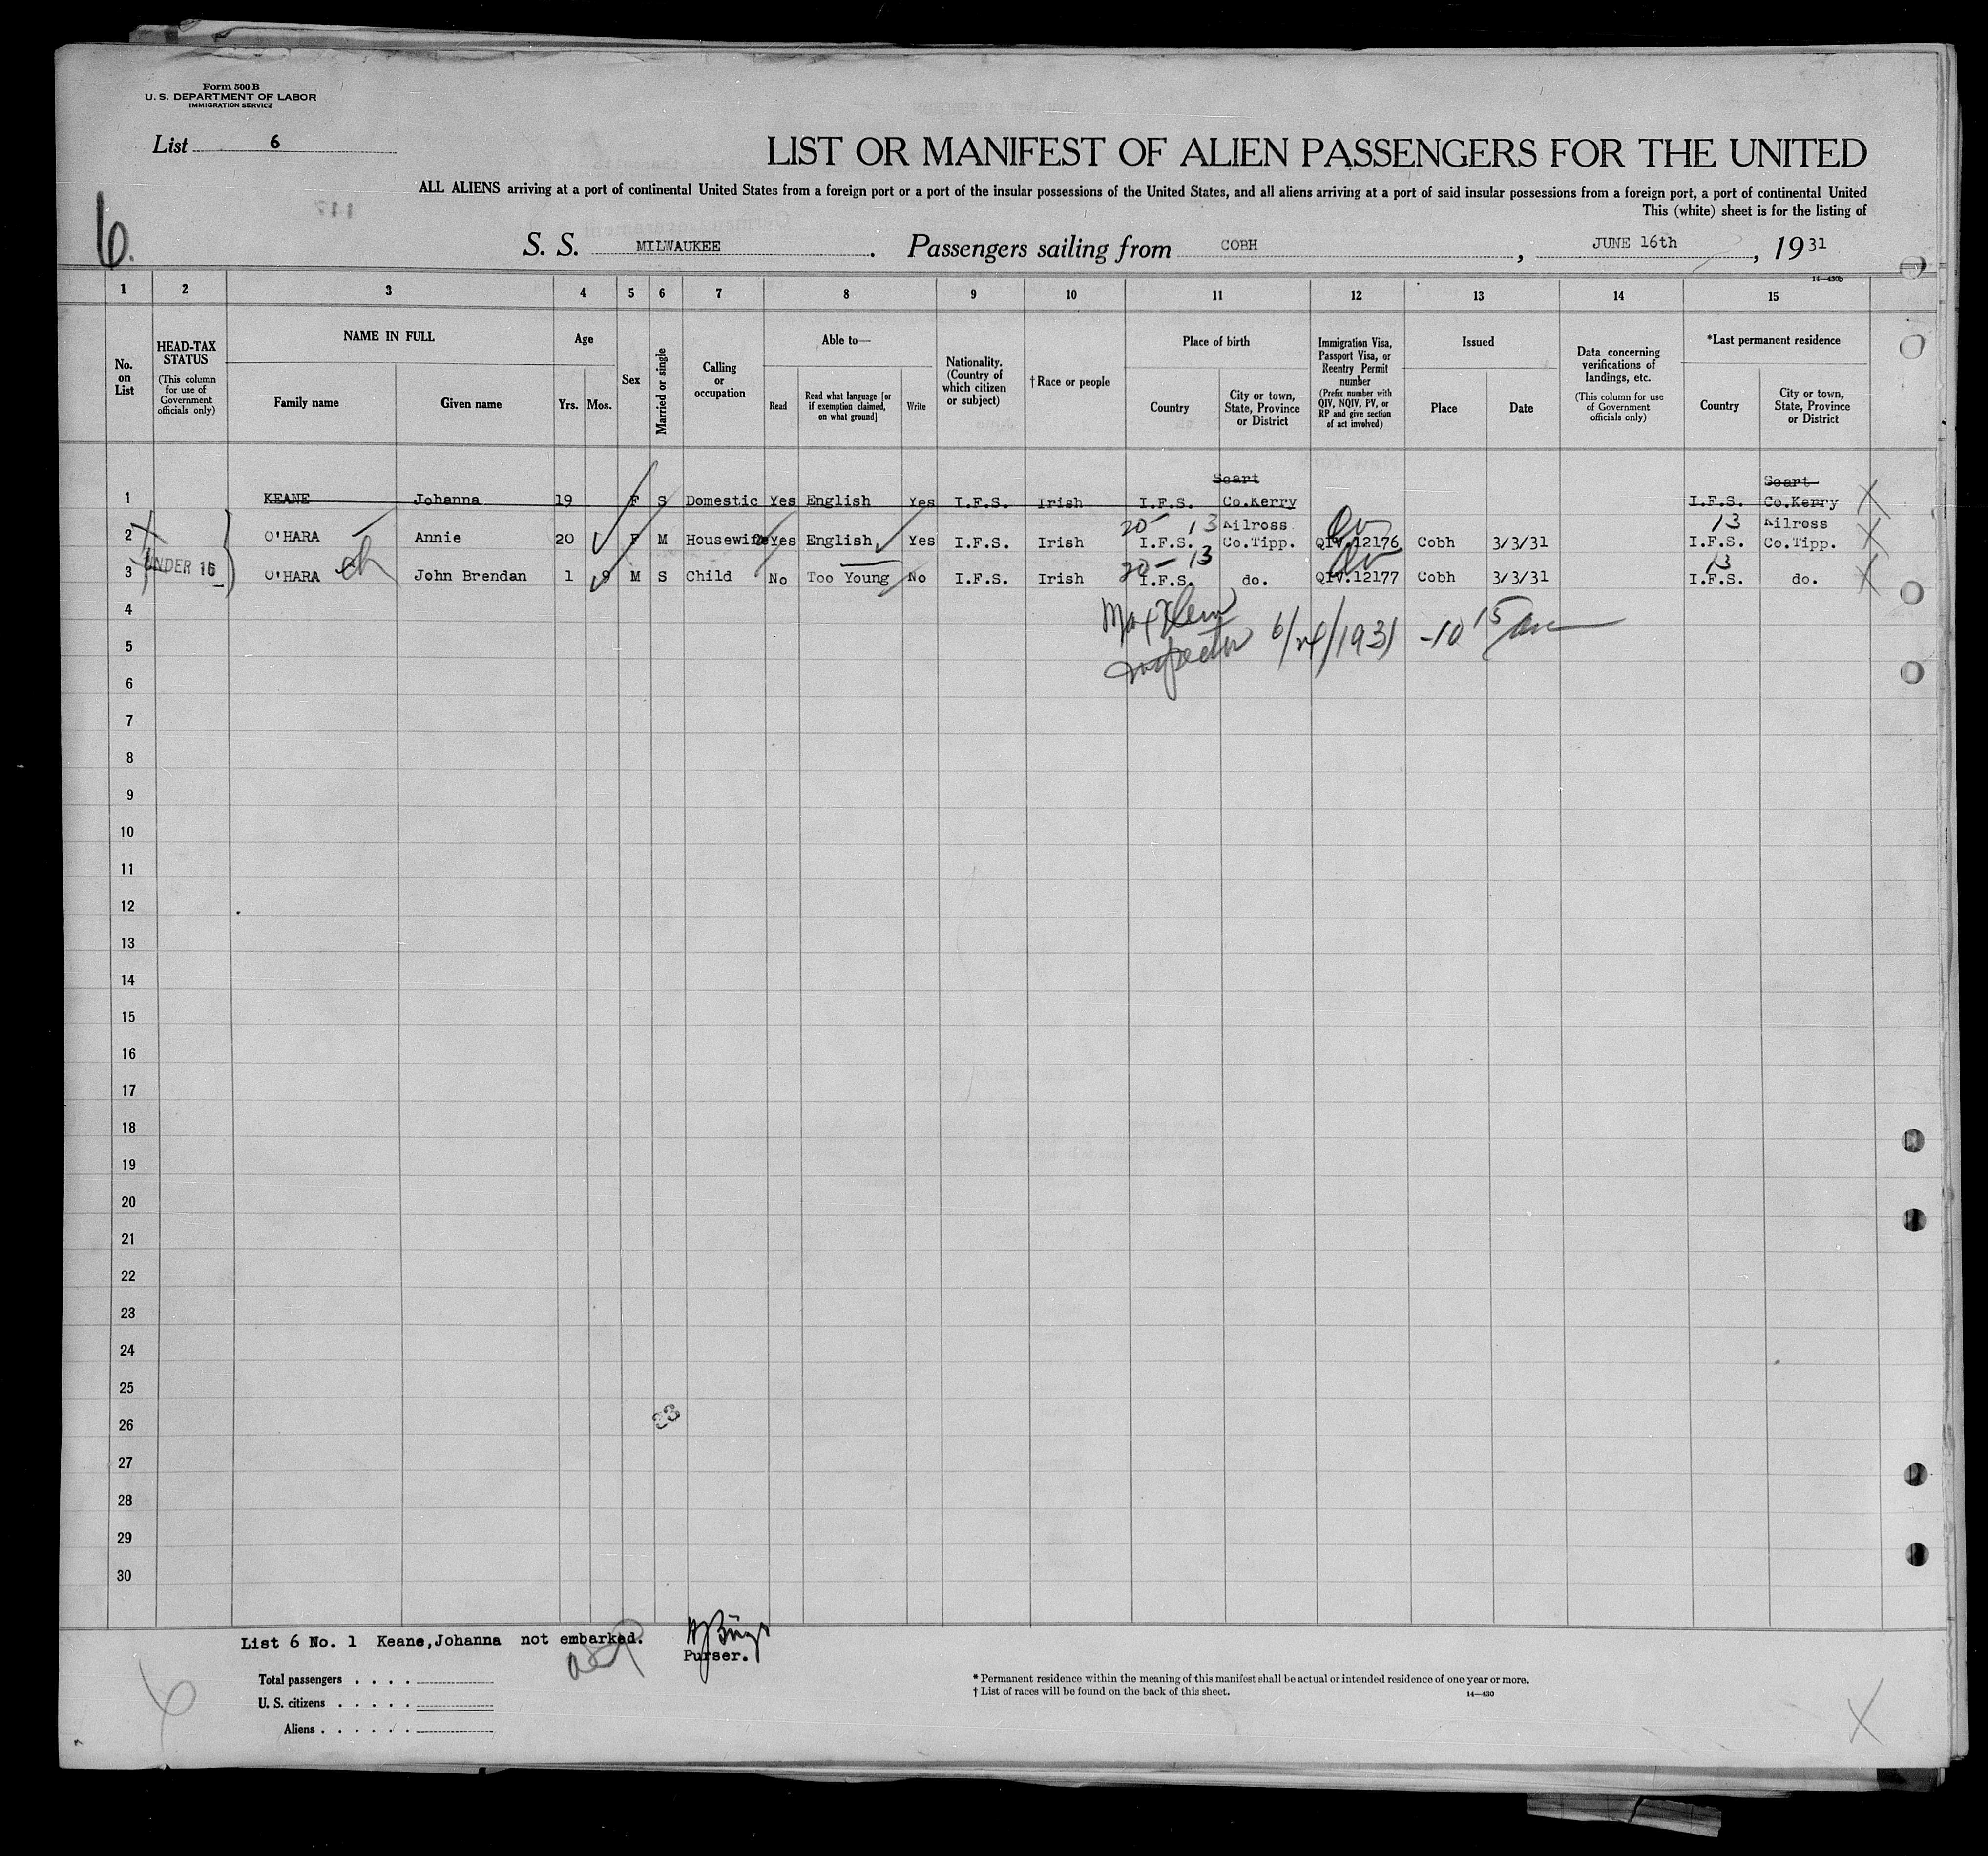 Form 500 B
U. S. DEPARTMENT OF LABOR
IMMIGRATION SERVICE
List 6
LIST OR MANIFEST OF ALIEN PASSENGERS FOR THE UNITED
ALL ALIENS arriving at a port of continental United States from a foreign port or a port of the insular possessions of the United States, and all aliens arriving at a port of said insular possessions from a foreign port, a port of continental United
This (white) sheet is for the listing of
6.
S. S. MILWAUKEE. Passengers sailing from COBH, JUNE 16th, 1931
14—430b
1 2 3 4 5 6 7 8 9 10 11 12 13 14 15
No. on List
HEAD-TAX STATUS (This column for use of Government officials only)
NAME IN FULL
Family name Given name
Age
Yrs. Mos.
Sex
Married or single
Calling or occupation
Able to—
Read
Read what language [or if exemption claimed, on what ground]
Write
Nationality. (Country of which citizen or subject)
†Race or people
Place of birth
Country
City or town, State, Province or District
Immigration Visa, Passport Visa, or Reentry Permit number (Prefix number with QIV, NQIV, PV, or RP and give section of act involved)
Issued
Place Date
Data concerning verifications of landings, etc. (This column for use of Government officials only)
*Last permanent residence
Country
City or town, State, Province or District
Scart Scart
1 KEANE Johanna 19 F S Domestic Yes English Yes I.F.S. Irish I.F.S. Co.Kerry I.F.S. Co.Kerry X
20 - 13 Kilross 13 Kilross
2 O'HARA Annie 20 F M Housewife Yes English Yes I.F.S. Irish I.F.S. Co.Tipp. QIV.12176 Cobh 3/3/31 I.F.S. Co.Tipp. X
UNDER 16
20 - 13 13
3 O'HARA John Brendan 1 9 M S Child No Too Young No I.F.S. Irish I.F.S. do. QIV.12177 Cobh 3/3/31 I.F.S. do. X
4
Inspector 6/24/1931 -10 15 am
5
6
7
8
9
10
11
12
13
14
15
16
17
18
19
20
21
22
23
24
25
26
23
27
28
29
30
List 6 No. 1 Keane,Johanna not embarked.
Purser.
Total passengers . . . .
U. S. citizens . . . . .
Aliens . . . . . .
* Permanent residence within the meaning of this manifest shall be actual or intended residence of one year or more.
† List of races will be found on the back of this sheet.
14—430
X